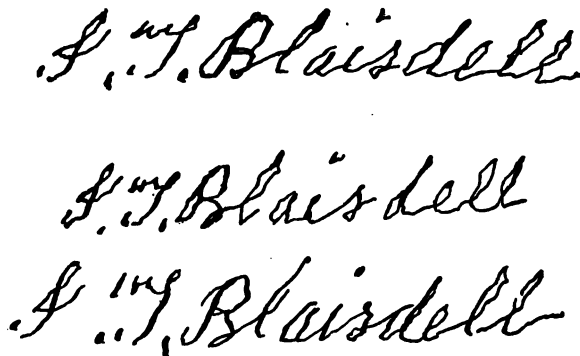 J. T. Blaisdell
J. T. Blaisdell
J. T. Blaisdell